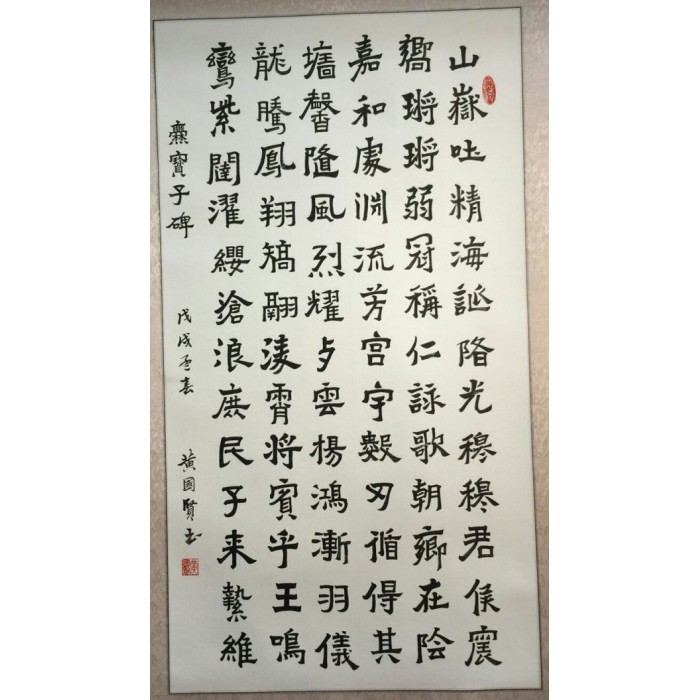 山嶽吐精海誕降光穆穆君侯震
嚮鏘鏘弱冠稱仁詠歌朝鄉在陰
嘉和處渊流芳宮宇數刃循得其
墻馨隨風烈耀与雲楊鴻漸羽儀
龍騰鳳翔矯翮淩霄将賓乎王鳴
鸞紫闥濯纓滄浪庶民子来縶維
爨寶子碑 戊戌孟春 黃國賢书